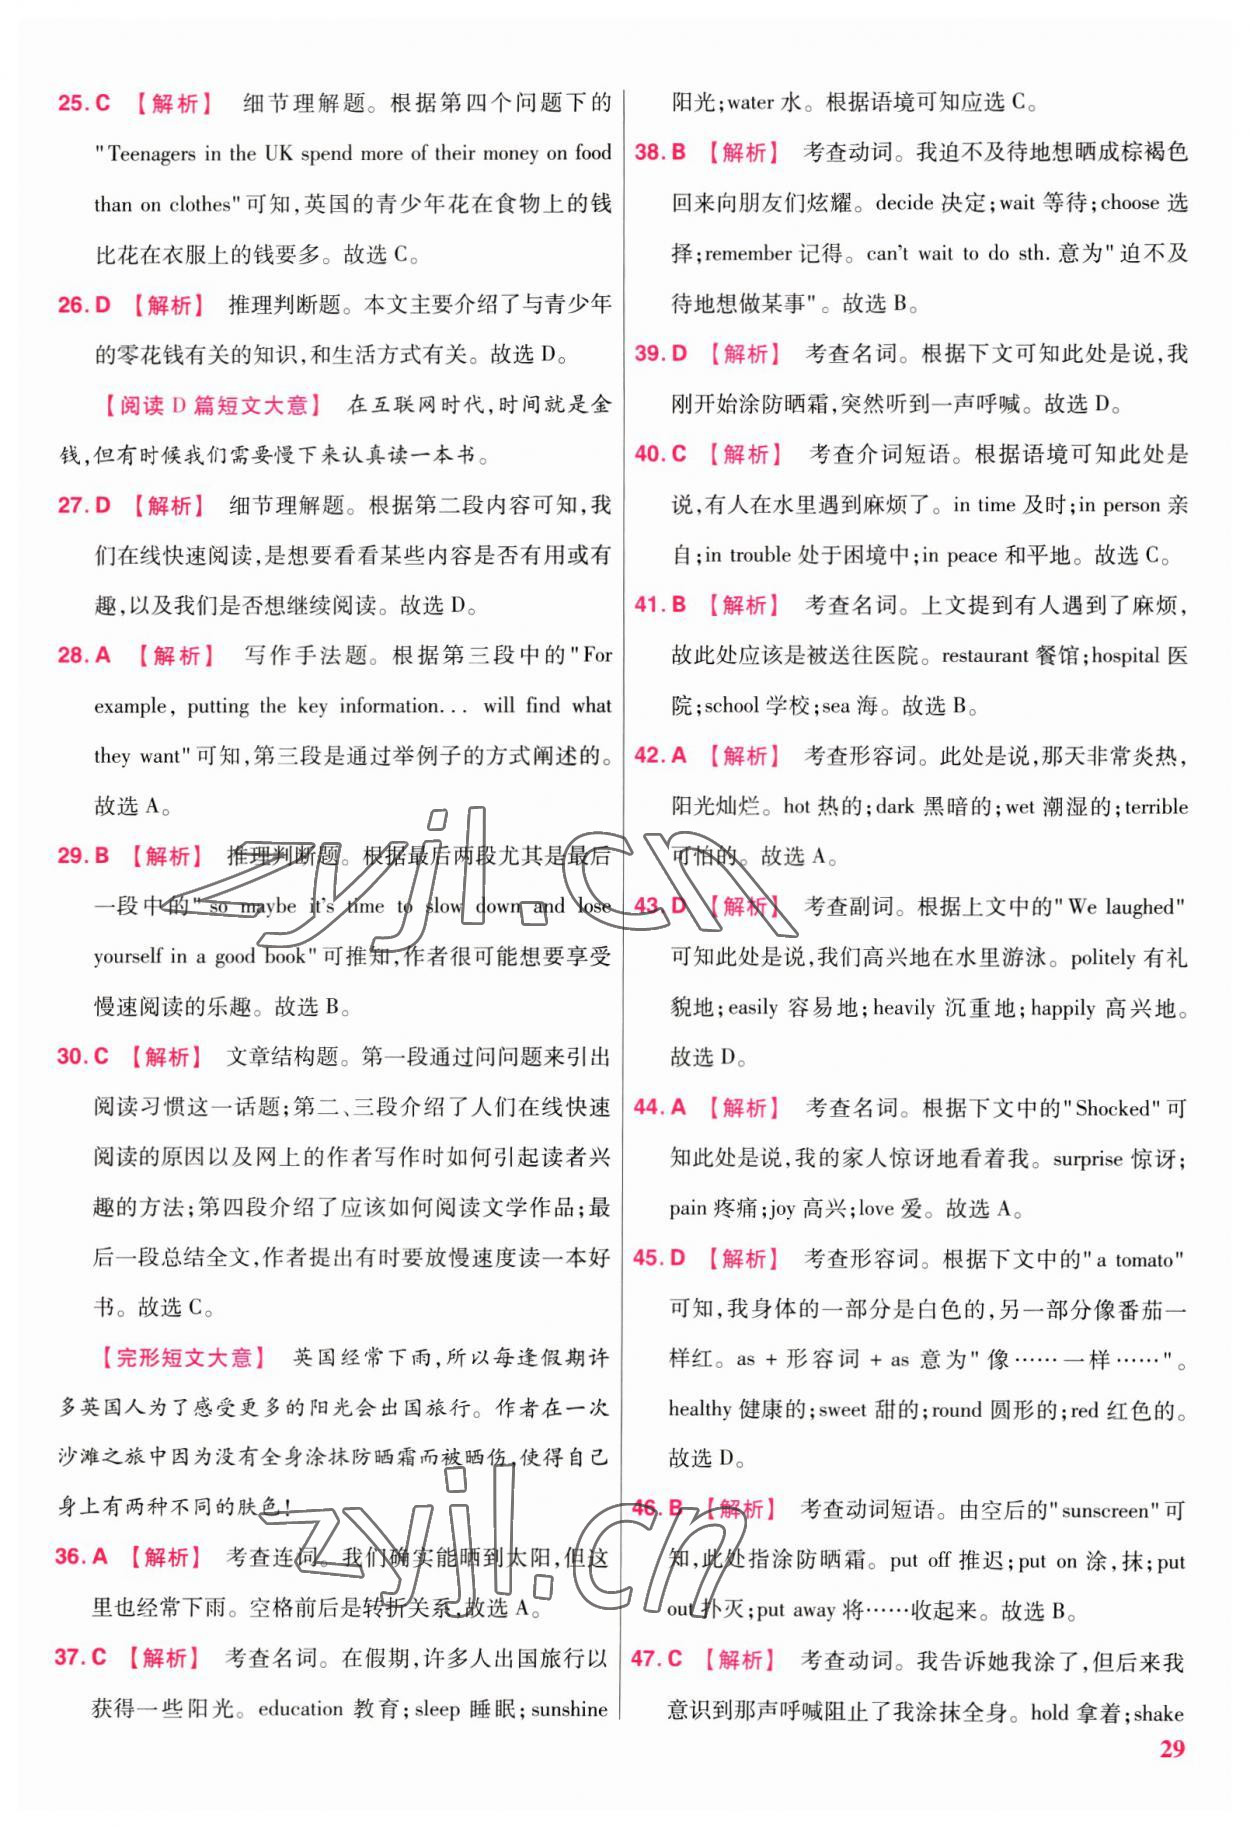 25. C 【解析】 细节理解题。根据第四个问题下的
"Teenagers in the UK spend more of their money on food
than on clothes"可知,英国的青少年花在食物上的钱
比花在衣服上的钱要多。故选 C。
26. D 【解析】 推理判断题。本文主要介绍了与青少年
的零花钱有关的知识,和生活方式有关。故选 D。
【阅读 D 篇短文大意】 在互联网时代,时间就是金
钱,但有时候我们需要慢下来认真读一本书。
27. D 【解析】 细节理解题。根据第二段内容可知,我
们在线快速阅读,是想要看看某些内容是否有用或有
趣,以及我们是否想继续阅读。故选 D。
28. A 【解析】 写作手法题。根据第三段中的"For
example, putting the key information... will find what
they want"可知,第三段是通过举例子的方式阐述的。
故选 A。
29. B 【解析】 推理判断题。根据最后两段尤其是最后
一段中的" so maybe it's time to slow down and lose
yourself in a good book"可推知,作者很可能想要享受
慢速阅读的乐趣。故选 B。
30. C 【解析】 文章结构题。第一段通过问问题来引出
阅读习惯这一话题;第二、三段介绍了人们在线快速
阅读的原因以及网上的作者写作时如何引起读者兴
趣的方法;第四段介绍了应该如何阅读文学作品;最
后一段总结全文,作者提出有时要放慢速度读一本好
书。故选 C。
【完形短文大意】 英国经常下雨,所以每逢假期许
多英国人为了感受更多的阳光会出国旅行。作者在一次
沙滩之旅中因为没有全身涂抹防晒霜而被晒伤,使得自己
身上有两种不同的肤色!
36. A 【解析】 考查连词。我们确实能晒到太阳,但这
里也经常下雨。空格前后是转折关系,故选 A。
37. C 【解析】 考查名词。在假期,许多人出国旅行以
获得一些阳光。education 教育;sleep 睡眠;sunshine
阳光;water 水。根据语境可知应选 C。
38. B 【解析】 考查动词。我迫不及待地想晒成棕褐色
回来向朋友们炫耀。decide 决定;wait 等待;choose 选
择;remember 记得。can't wait to do sth. 意为"迫不及
待地想做某事"。故选 B。
39. D 【解析】 考查名词。根据下文可知此处是说,我
刚开始涂防晒霜,突然听到一声呼喊。故选 D。
40. C 【解析】 考查介词短语。根据语境可知此处是
说,有人在水里遇到麻烦了。in time 及时;in person 亲
自;in trouble 处于困境中;in peace 和平地。故选 C。
41. B 【解析】 考查名词。上文提到有人遇到了麻烦,
故此处应该是被送往医院。restaurant 餐馆;hospital 医
院;school 学校;sea 海。故选 B。
42. A 【解析】 考查形容词。此处是说,那天非常炎热,
阳光灿烂。hot 热的;dark 黑暗的;wet 潮湿的;terrible
可怕的。故选 A。
43. D 【解析】 考查副词。根据上文中的"We laughed"
可知此处是说,我们高兴地在水里游泳。politely 有礼
貌地;easily 容易地;heavily 沉重地;happily 高兴地。
故选 D。
44. A 【解析】 考查名词。根据下文中的"Shocked"可
知此处是说,我的家人惊讶地看着我。surprise 惊讶;
pain 疼痛;joy 高兴;love 爱。故选 A。
45. D 【解析】 考查形容词。根据下文中的"a tomato"
可知,我身体的一部分是白色的,另一部分像番茄一
样红。as + 形容词 + as 意为"像……一样……"。
healthy 健康的;sweet 甜的;round 圆形的;red 红色的。
故选 D。
46. B 【解析】 考查动词短语。由空后的"sunscreen"可
知,此处指涂防晒霜。put off 推迟;put on 涂,抹;put
out 扑灭;put away 将……收起来。故选 B。
47. C 【解析】 考查动词。我告诉她我涂了,但后来我
意识到那声呼喊阻止了我涂抹全身。hold 拿着;shake
29
zyjl.cn
zyjl.cn